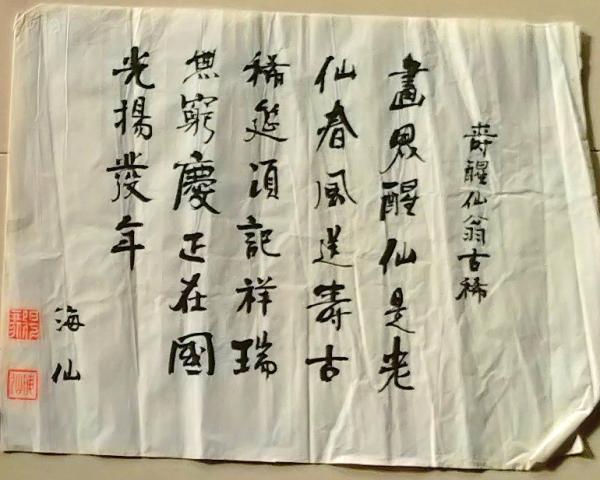 壽醒仙翁古稀
畫界醒仙是老
仙春風送壽古
稀筵須記祥瑞
無窮慶正在國
光揚發年
海仙